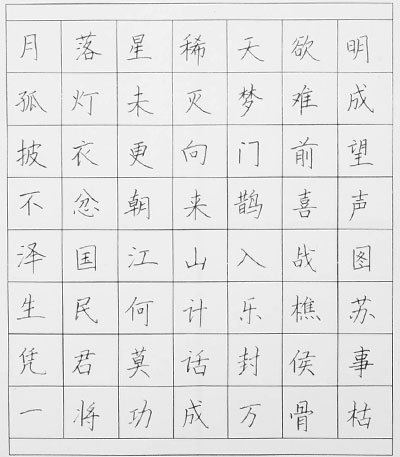 月落星稀天欲明
孤灯未灭梦难成
披衣更向门前望
不忿朝来鹊喜声
泽国江山入战图
生民何计乐樵苏
凭君莫话封侯事
一将功成万骨枯